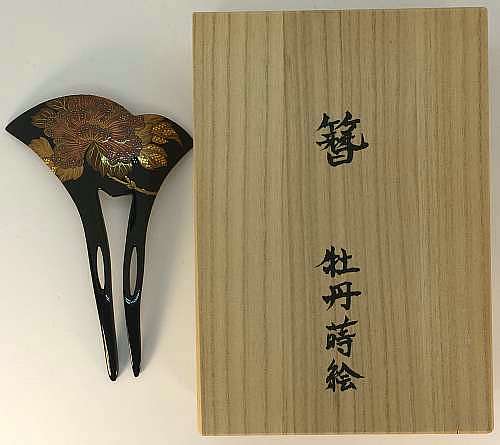 簪
牡丹蒔絵